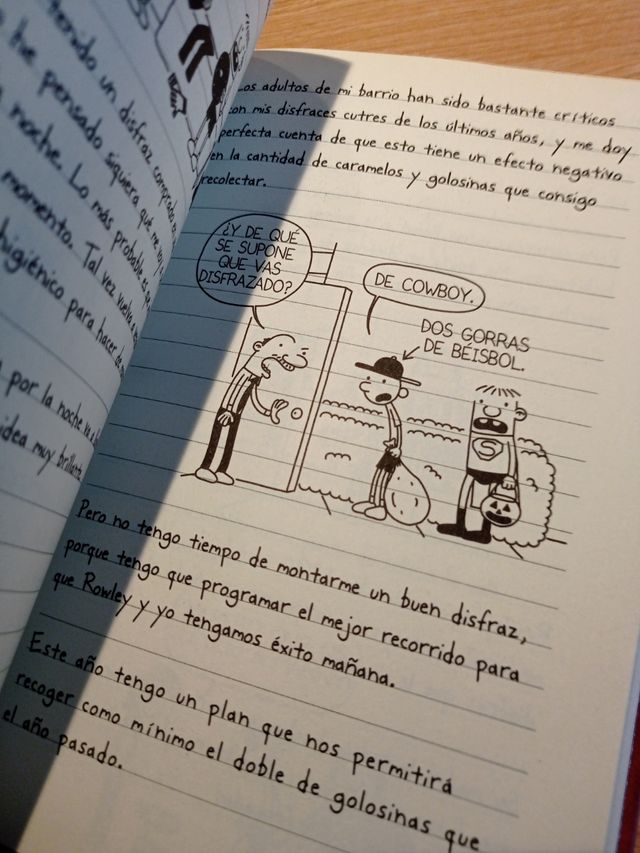 tenido un disfraz comprado
he pensado siquiera que me
noche. Lo más probable es que
momento. Tal vez vuelva
higiénico para hacer de
por la noche
idea muy brillante.
Los adultos de mi barrio han sido bastante críticos
con mis disfraces cutres de los últimos años, y me doy
perfecta cuenta de que esto tiene un efecto negativo
en la cantidad de caramelos y golosinas que consigo
recolectar.
¿Y DE QUÉ
SE SUPONE
QUE VAS
DISFRAZADO?
DE COWBOY.
DOS GORRAS
DE BÉISBOL.
S
Pero no tengo tiempo de montarme un buen disfraz,
porque tengo que programar el mejor recorrido para
que Rowley y yo tengamos éxito mañana.
Este año tengo un plan que nos permitirá
recoger como mínimo el doble de golosinas que
el año pasado.